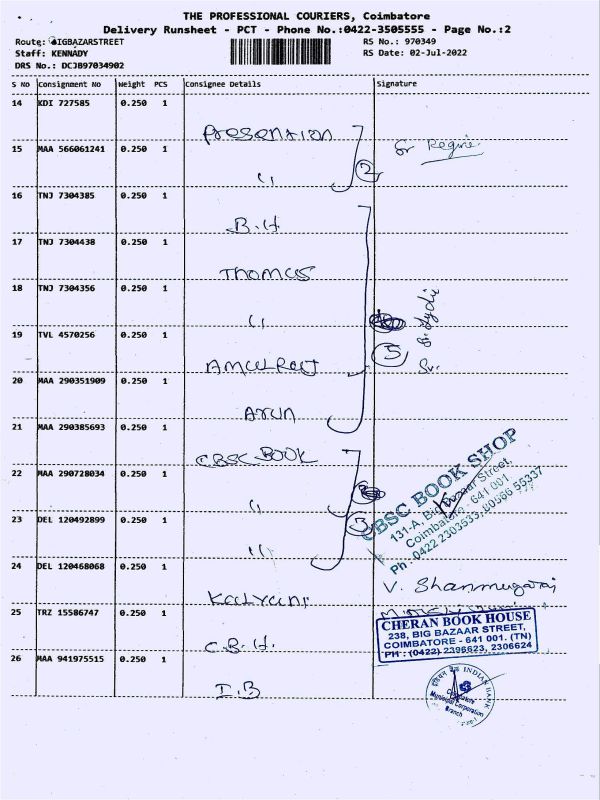 THE PROFESSIONAL COURIERS, Coimbatore
Delivery Runsheet - PCT - Phone No.:0422-3505555 - Page No.:2
Route: BIGBAZARSTREET
RS No.: 970349
Staff: KENNADY
RS Date: 02-Jul-2022
DRS No.: DCJB97034902
S No Consignment No Weight PCS Consignee Details Signature
14 KDI 727585 0.250 1
Presention
15 MAA 566061241 0.250 1
Sr Regine
" 2
16 TNJ 7304385 0.250 1
B.H.
17 TNJ 7304438 0.250 1
Thomus
18 TNJ 7304356 0.250 1
"
19 TVL 4570256 0.250 1
5
AmulRaj
20 MAA 290351909 0.250 1
Arun
21 MAA 290385693 0.250 1
CBSC BOOK
22 MAA 290728034 0.250 1
"
23 DEL 120492899 0.250 1
3
"
CBSC BOOK SHOP
131-A, Big Bazaar Street,
Coimbatore - 641 001
Ph: 0422 2303533, 80566 55337
24 DEL 120468068 0.250 1
Kalyani
V. Shanmugaraj
25 TRZ 15586747 0.250 1
C.B.H.
CHERAN BOOK HOUSE
238, BIG BAZAAR STREET,
COIMBATORE - 641 001. (TN)
PH : (0422) 2396623, 2306624
26 MAA 941975515 0.250 1
I.B
INDIAN BANK
Coimbatore
Municipal Corporation
Branch